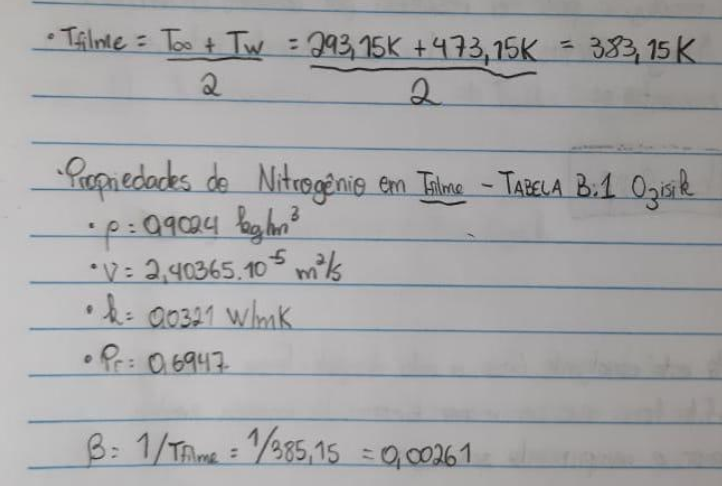 • Tfilme = T∞ + Tw = 293,15K + 473,15K = 383,15K
2 2
• Propriedades do Nitrogênio em Tfilme - TABELA B.1 Ozisik
• ρ = 0,9024 kg/m³
• ν = 2,40365.10⁻⁵ m²/s
• k = 0,0321 W/mK
• Pr = 0,6947
β = 1/Tfilme = 1/385,15 = 0,00261